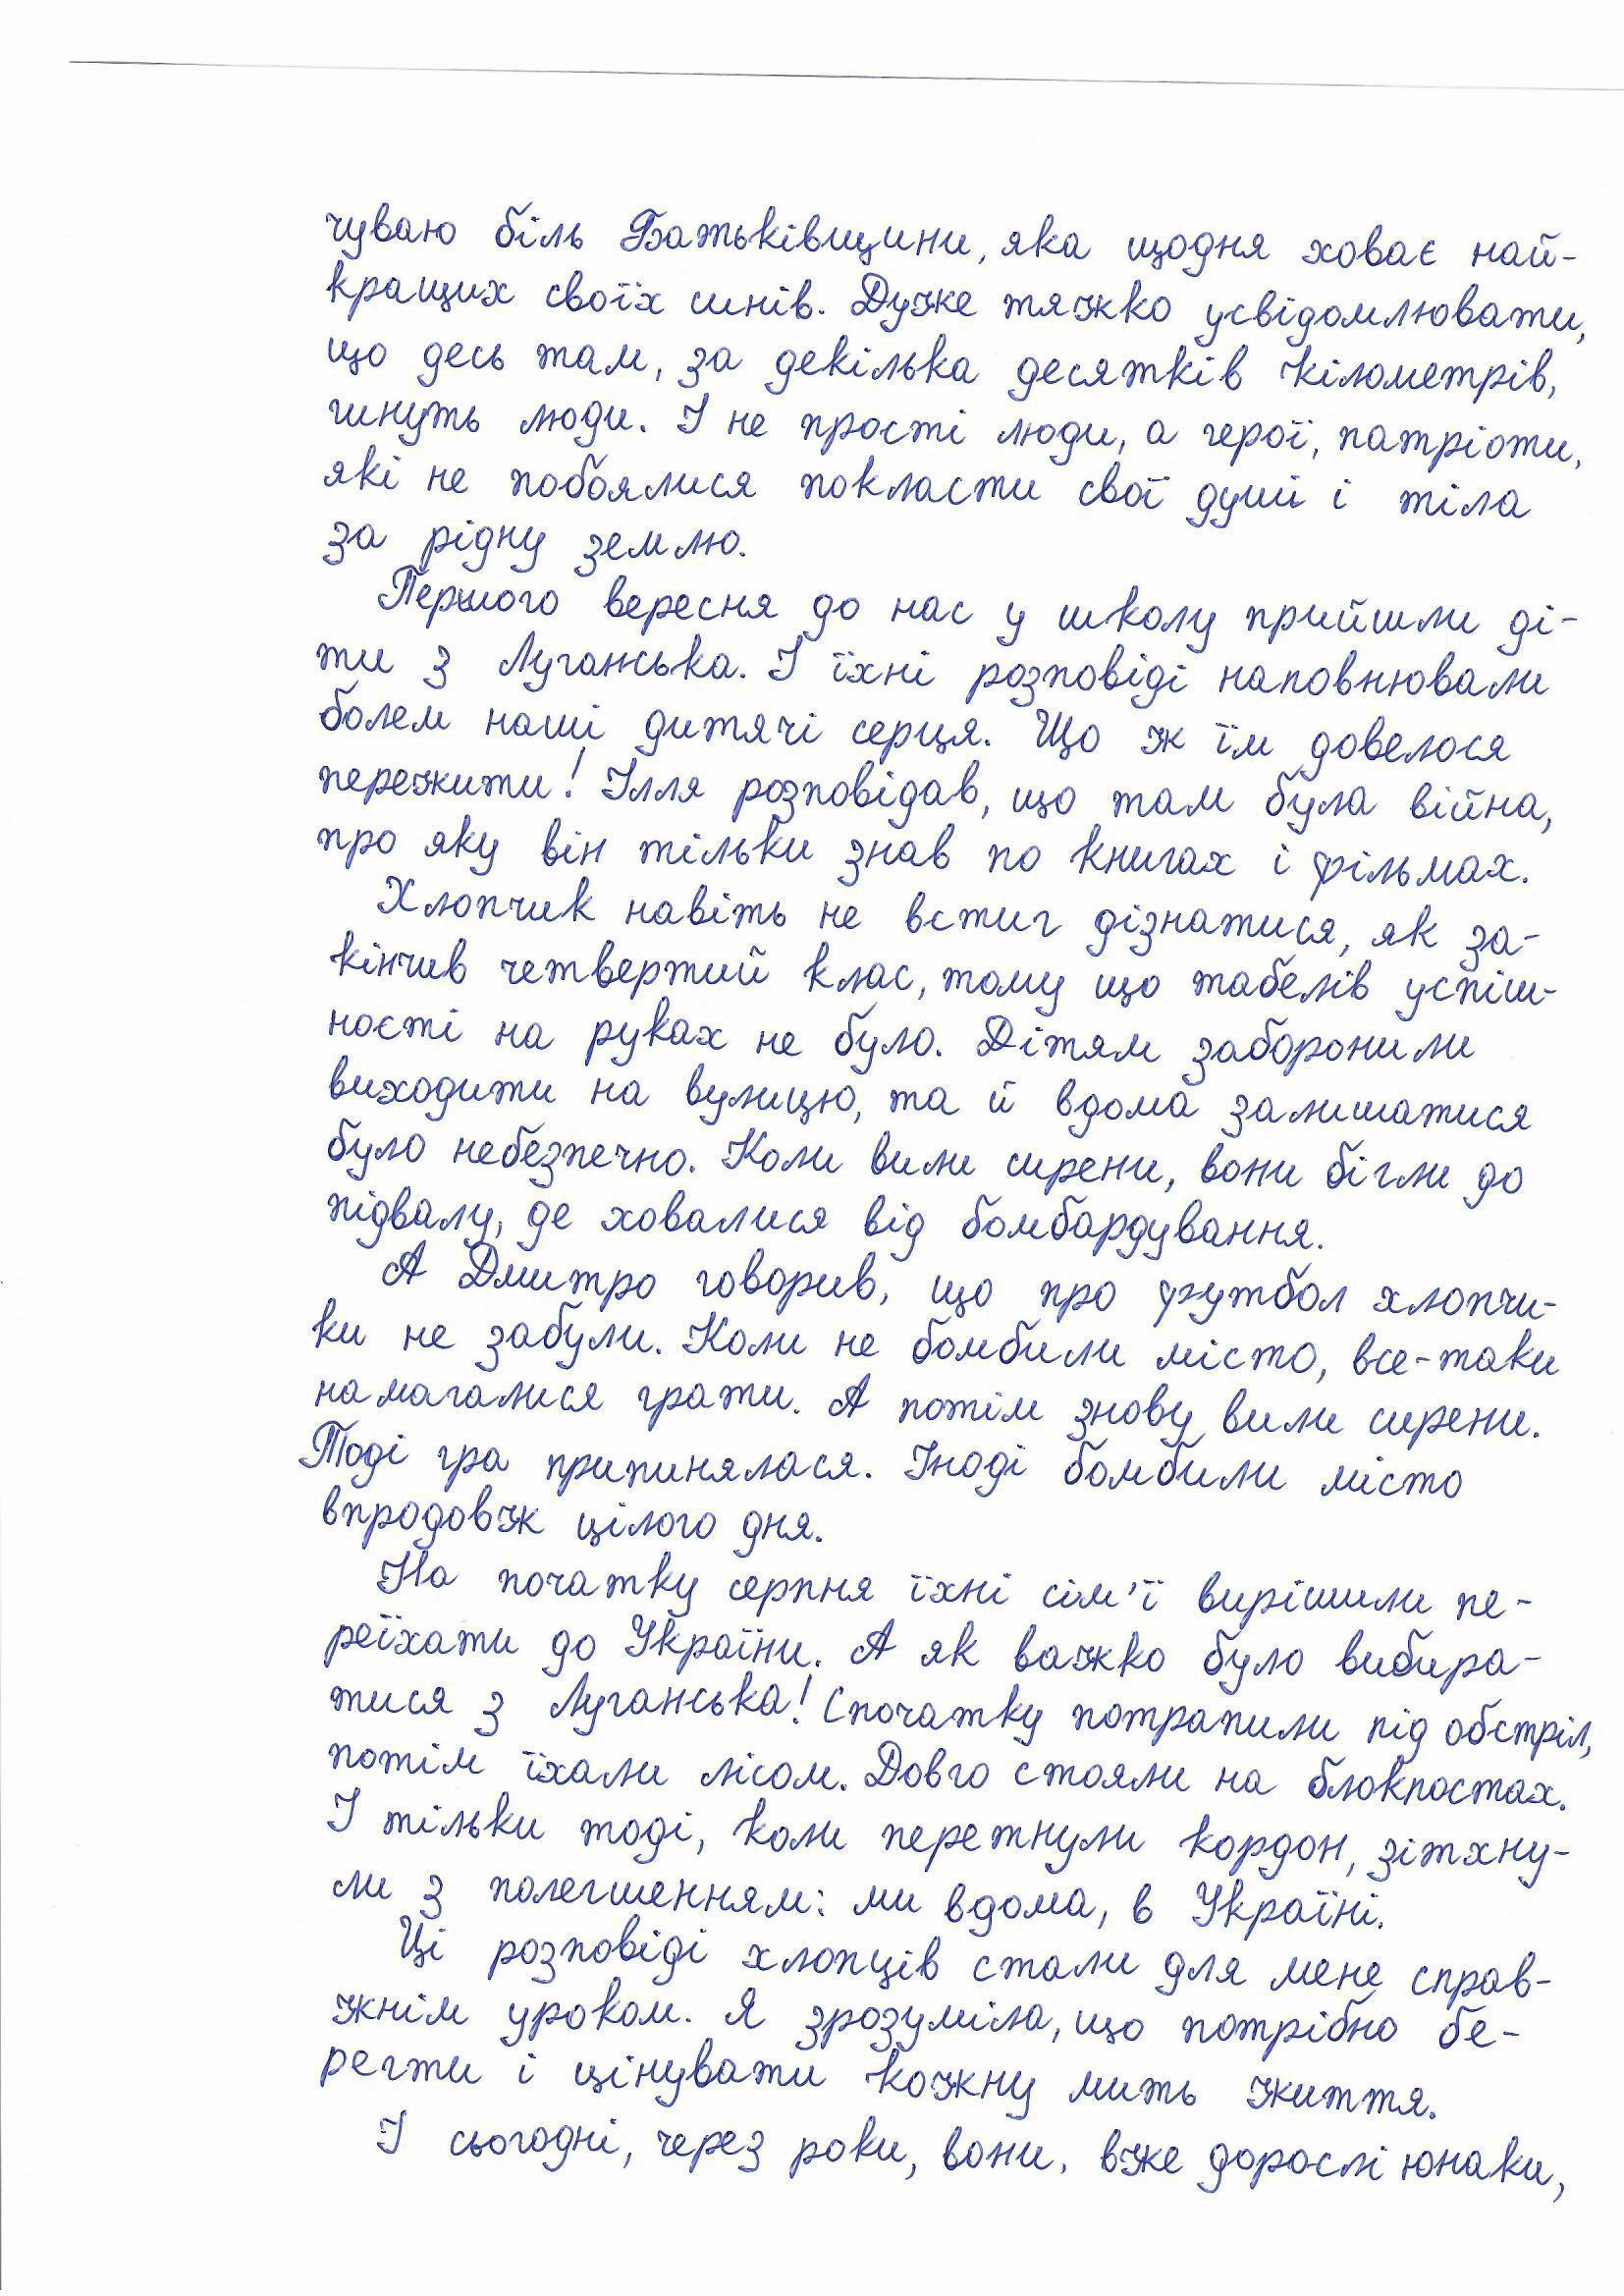 чуваю біль Батьківщини, яка щодня ховає най-
кращих своїх синів. Дуже тяжко усвідомлювати,
що десь там, за декілька десятків кілометрів,
гинуть люди. І не прості люди, а герої, патріоти,
які не побоялися покласти свої душі і тіла
за рідну землю.
Першого вересня до нас у школу прийшли ді-
ти з Луганська. І їхні розповіді наповнювали
болем наші дитячі серця. Що ж їм довелося
пережити! Ілля розповідав, що там була війна,
про яку він тільки знав по книгах і фільмах.
Хлопчик навіть не встиг дізнатися, як за-
кінчив четвертий клас, тому що табелів успіш-
ності на руках не було. Дітям заборонили
виходити на вулицю, та й вдома залишатися
було небезпечно. Коли вили сирени, вони бігли до
підвалу, де ховалися від бомбардування.
А Дмитро говорив, що про футбол хлопчи-
ки не забули. Коли не бомбили місто, все-таки
намагалися грати. А потім знову вили сирени.
Тоді гра припинялася. Іноді бомбили місто
впродовж цілого дня.
На початку серпня їхні сім'ї вирішили пе-
реїхати до України. А як важко було вибира-
тися з Луганська! Спочатку потрапили під обстріл,
потім їхали лісом. Довго стояли на блокпостах.
І тільки тоді, коли перетнули кордон, зітхну-
ли з полегшенням: ми вдома, в Україні.
Ці розповіді хлопців стали для мене справ-
жнім уроком. Я зрозуміла, що потрібно бе-
регти і цінувати кожну мить життя.
І сьогодні, через роки, вони, вже дорослі юнаки,